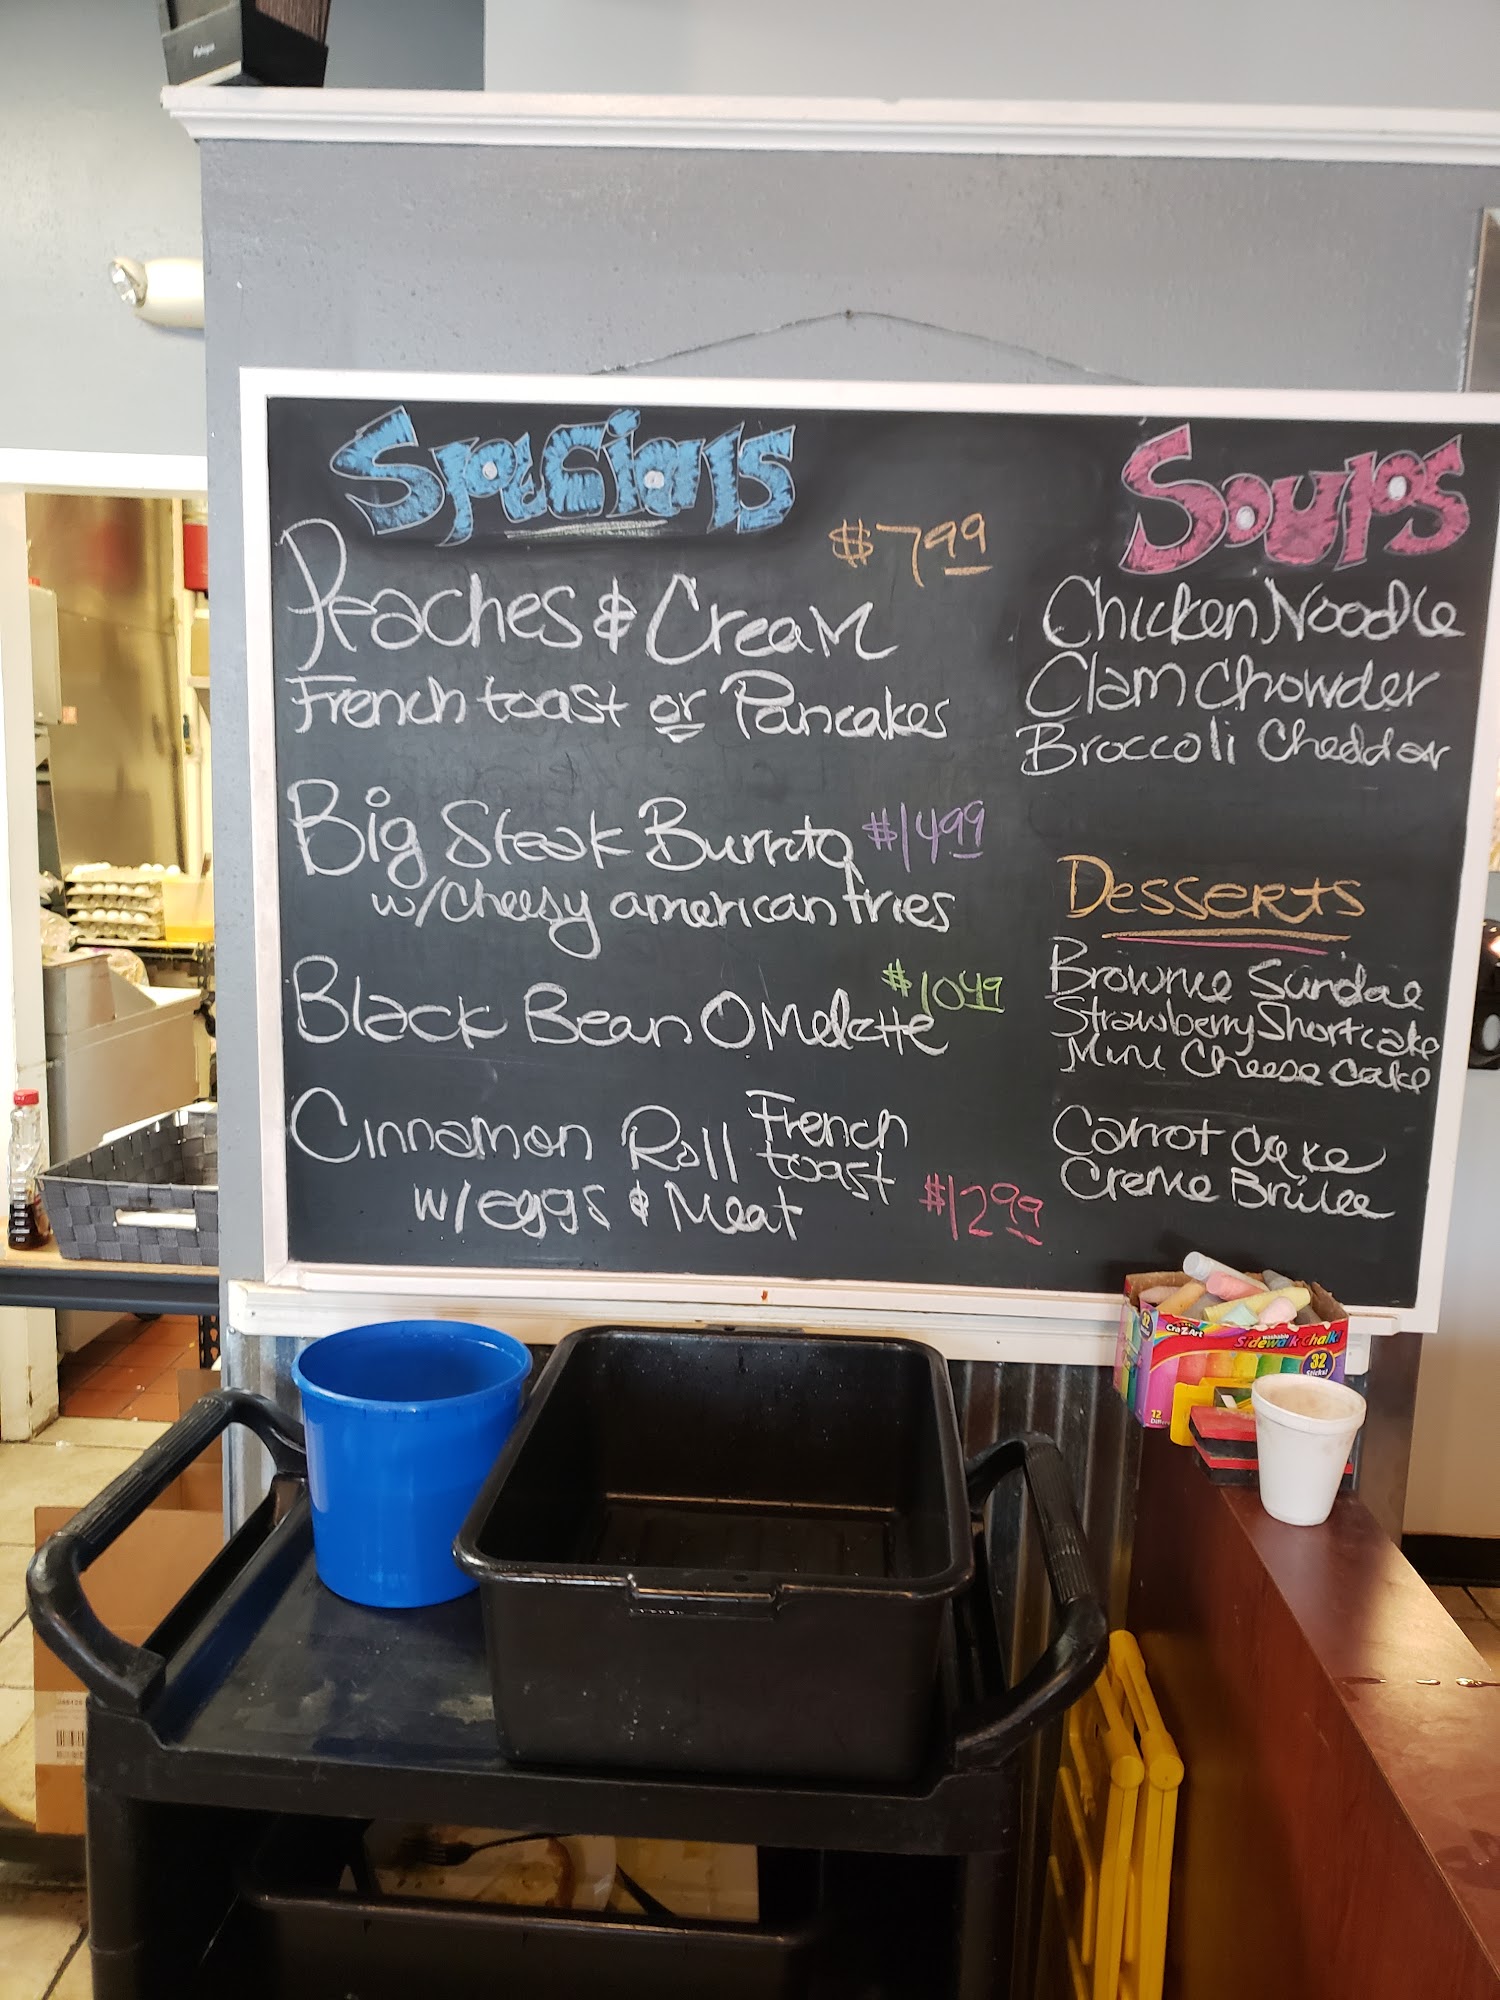 Specials
$7.99
Peaches & Cream
French toast or Pancakes
Big Steak Burrito $14.99
w/Cheesy american fries
Black Bean Omelette $10.49
Cinnamon Roll French toast
w/eggs & Meat $12.99
Soups
Chicken Noodle
Clam Chowder
Broccoli Cheddar
Desserts
Brownie Sundae
Strawberry Shortcake
Mini Cheese Cake
Carrot Cake
Creme Brulee
Cra-Z-Art
washable
Sidewalk Chalk!
32
Sticks!
12